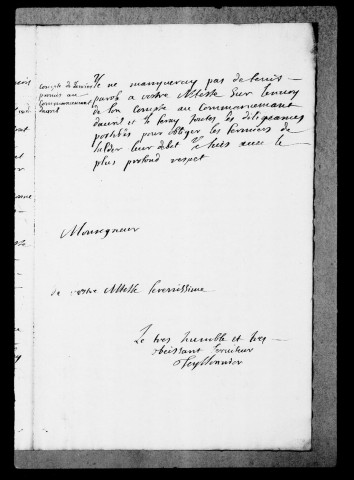 Compte de
promis au
Commancemant
daout
Je ne manqueray pas de tenir
parole a vostre Altesse Sur Lenvoy
de son Compte au Commancemant
daout et Je feray toutes les diligeances
posibles pour obliger les fermiers de
solder leur debet Je suis avec le
plus profond respect
Monseigneur
de vostre Altesse Serenissime
Le tres humble et tres
obeissant Serviteur